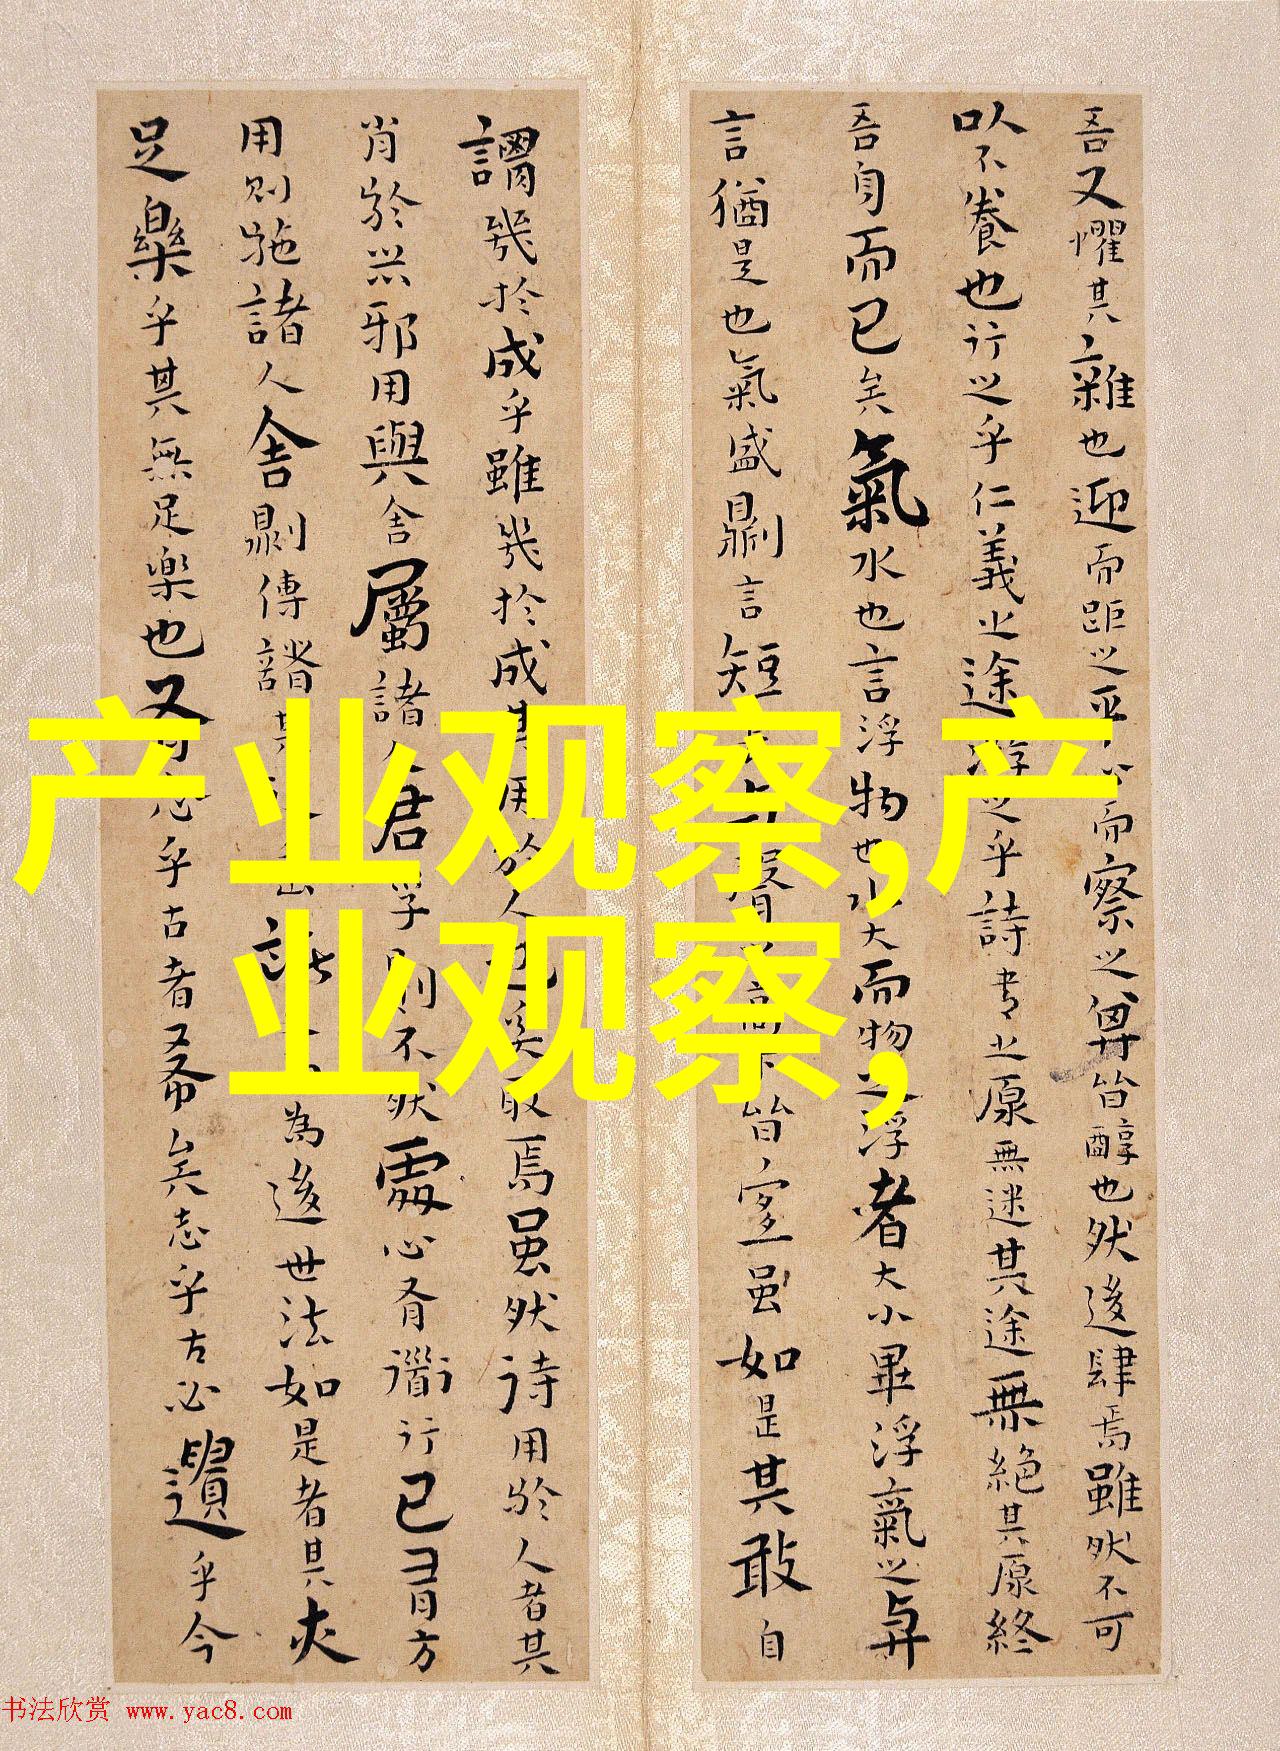 吾又懼其雜也迎而距之平心而察之其皆醇也然後肆焉雖然不可
以不養也行之乎仁義之途游之乎詩書之原無迷其途無絕其原終
吾身而已矣氣水也言浮物也水大而物之浮者大小畢浮氣之與
言猶是也氣盛則言短皆宜雖如是其敢自
謂幾於成乎雖幾於成其用於人也奚取焉雖然待用於人者其
肖於器邪用與舍屬諸人君子則不然處心有道行已有方
用則施諸人舍則傳諸其為後世法如是者其亦
足樂乎其無足樂也有志乎古者希矣志乎古必遺乎今
产业观察,产
业观察,
书法欣赏 www.yac8.com